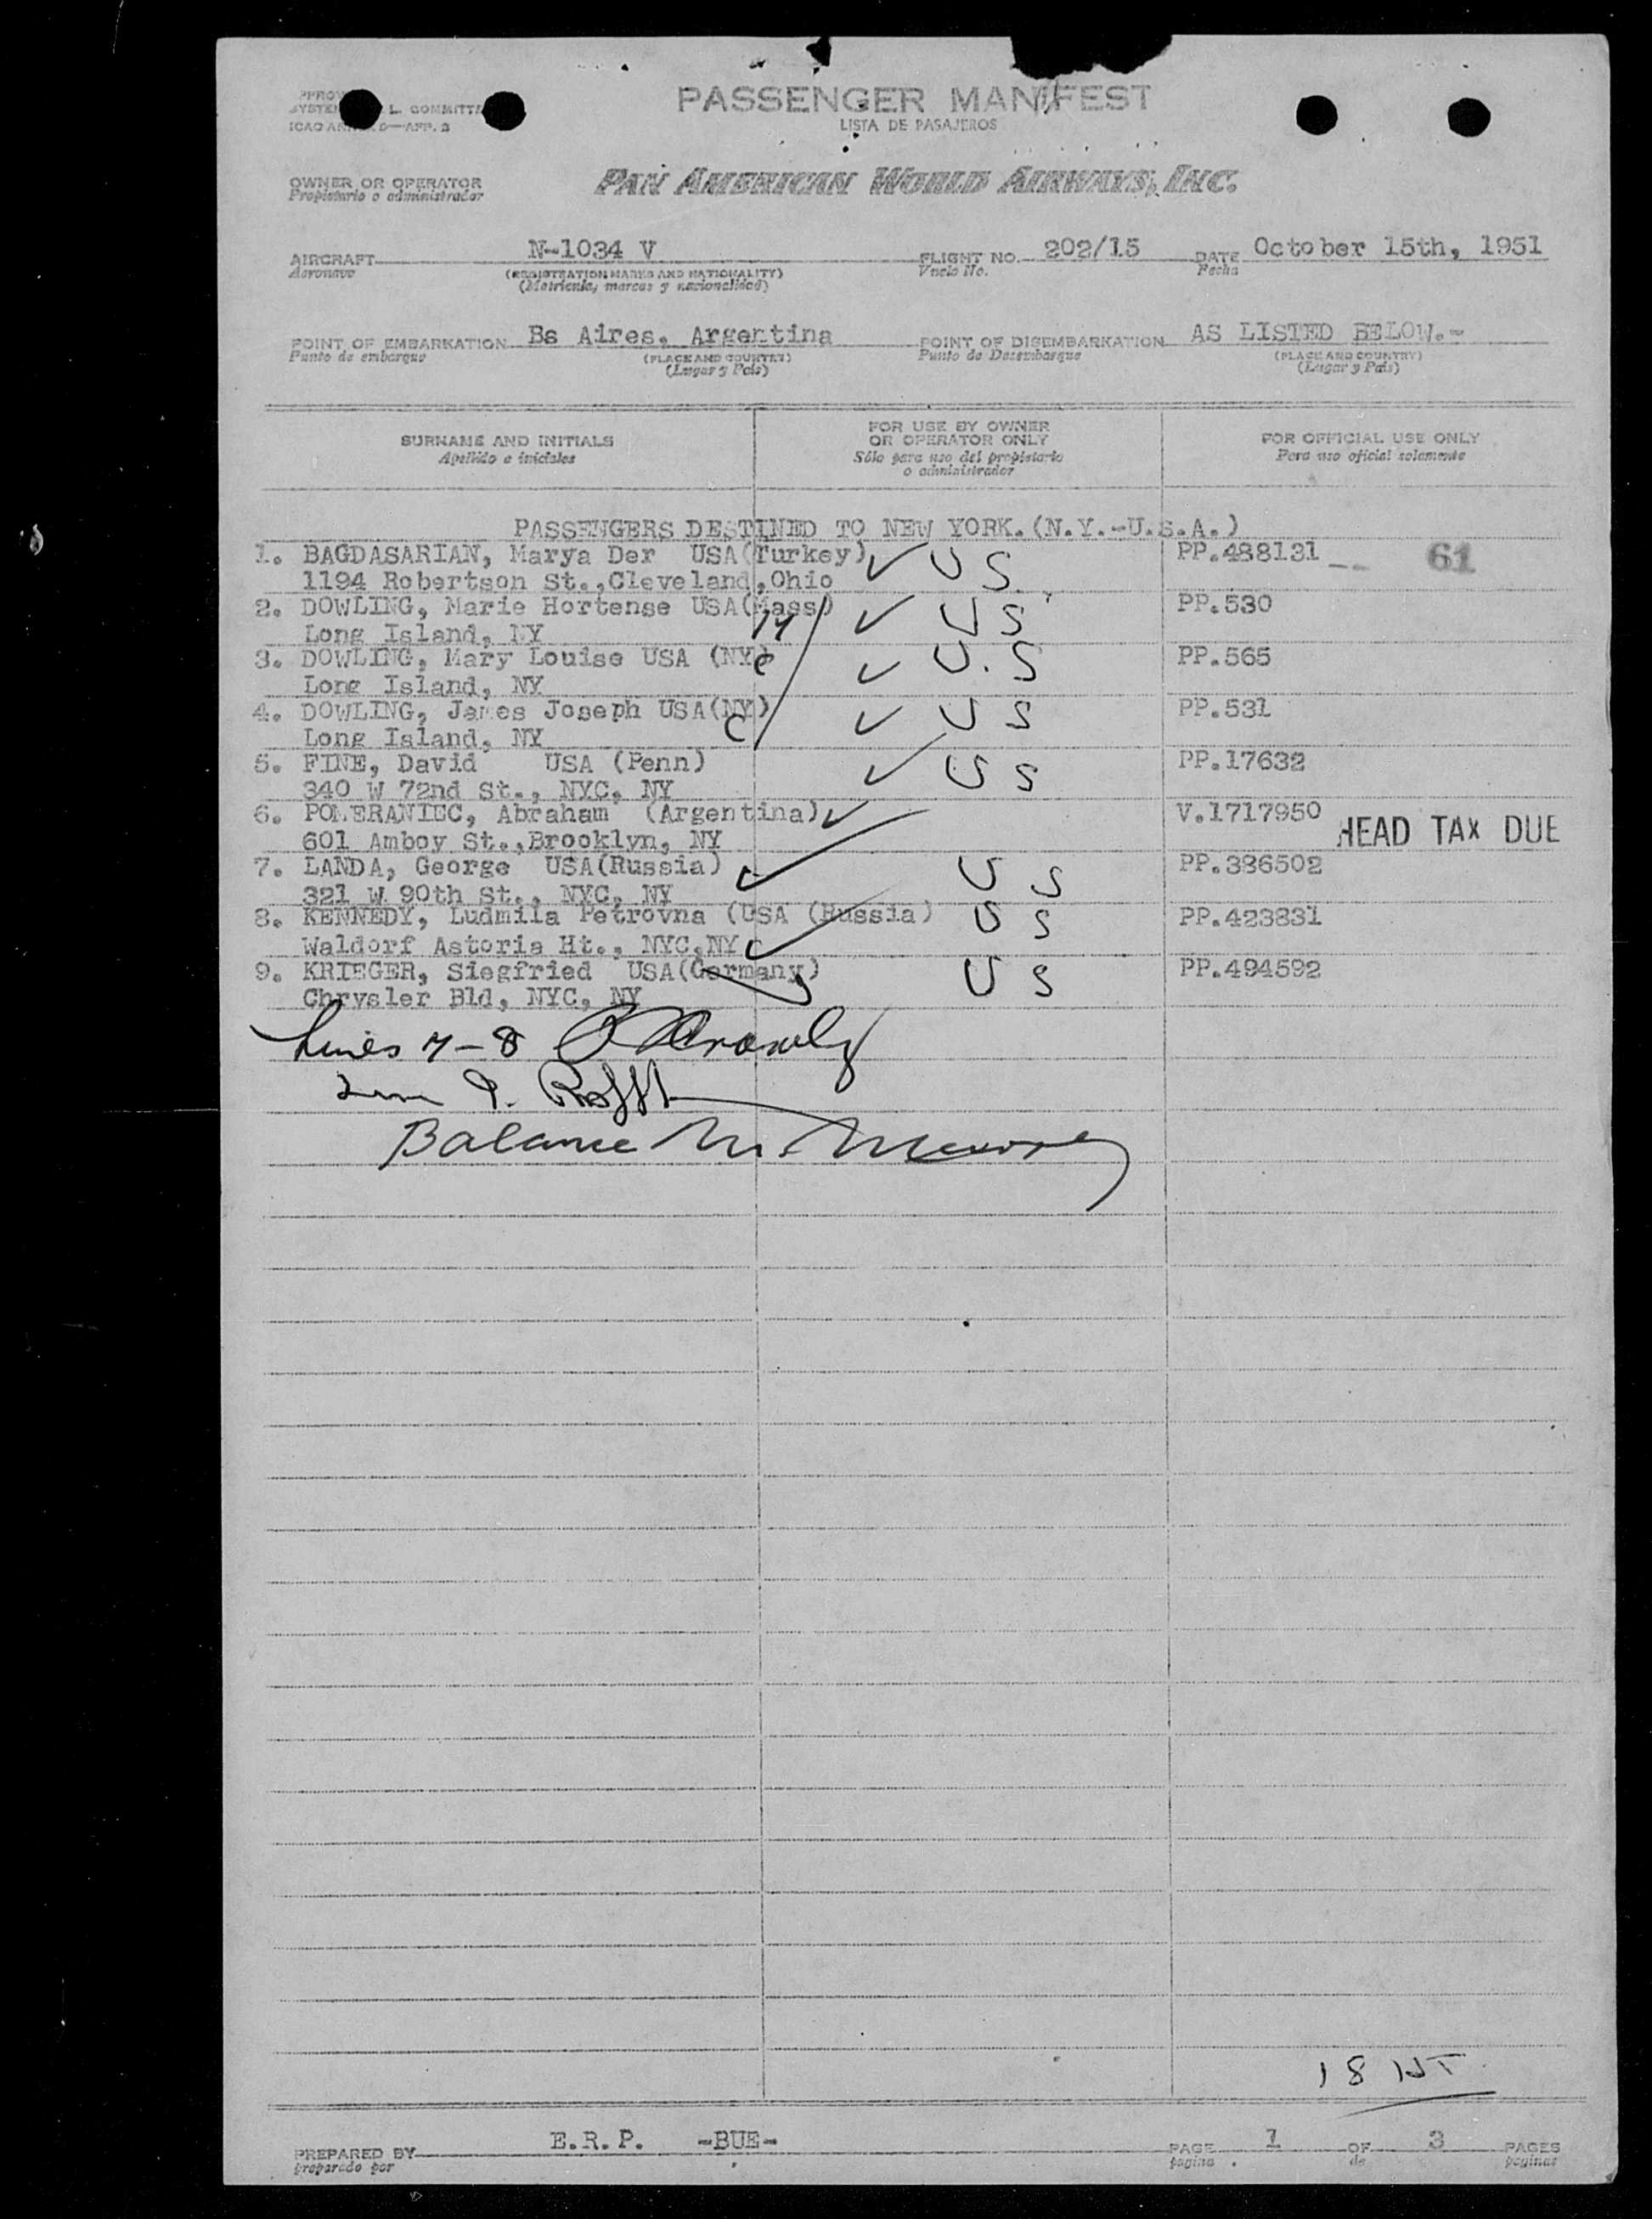 PASSENGER MANIFEST
LISTA DE PASAJEROS
L COMMITT
ICAO APP. 2
OWNER OR OPERATOR
Propietario o administrador
PAN AMERICAN WORLD AIRWAYS, INC.
AIRCRAFT N-1034 V FLIGHT NO. 202/15 DATE October 15th, 1951
Aeronave (REGISTRATION MARKS AND NATIONALITY) Vuelo No. Fecha
(Matricula, marcas y nacionalidad)
POINT OF EMBARKATION Bs Aires, Argentina POINT OF DISEMBARKATION AS LISTED BELOW.-
Punto de embarque (PLACE AND COUNTRY) Punto de Desembarque (PLACE AND COUNTRY)
(Lugar y Pais) (Lugar y Pais)
SURNAME AND INITIALS FOR USE BY OWNER OR OPERATOR ONLY FOR OFFICIAL USE ONLY
Apellido e iniciales Sólo para uso del propietario o administrador Para uso oficial solamente
PASSENGERS DESTINED TO NEW YORK.(N.Y.-U.S.A.)
1. BAGDASARIAN, Marya Der USA(Turkey) ✓ U S PP.488131 -- 61
1194 Robertson St.,Cleveland,Ohio
2. DOWLING, Marie Hortense USA(Mass) ✓ U S PP.530
Long Island, NY
3. DOWLING, Mary Louise USA (NY) ✓ U.S PP.565
Long Island, NY
4. DOWLING, James Joseph USA(NY) C ✓ U S PP.531
Long Island, NY
5. FINE, David USA (Penn) ✓ U S PP.17632
340 W 72nd St., NYC, NY
6. POMERANIEC, Abraham (Argentina) ✓ V.1717950 HEAD TAX DUE
601 Amboy St.,Brooklyn, NY
7. LANDA, George USA(Russia) ✓ U S PP.386502
321 W 90th St., NYC, NY
8. KENNEDY, Ludmila Petrovna (USA (Russia) U S PP.423831
Waldorf Astoria Ht., NYC,NY ✓
9. KRIEGER, Siegfried USA(Germany) U S PP.494592
Chrysler Bld, NYC, NY
Lines 7-8
Balance
18
PREPARED BY E.R.P. -BUE- PAGE 1 OF 3 PAGES
preparado por pagina de paginas